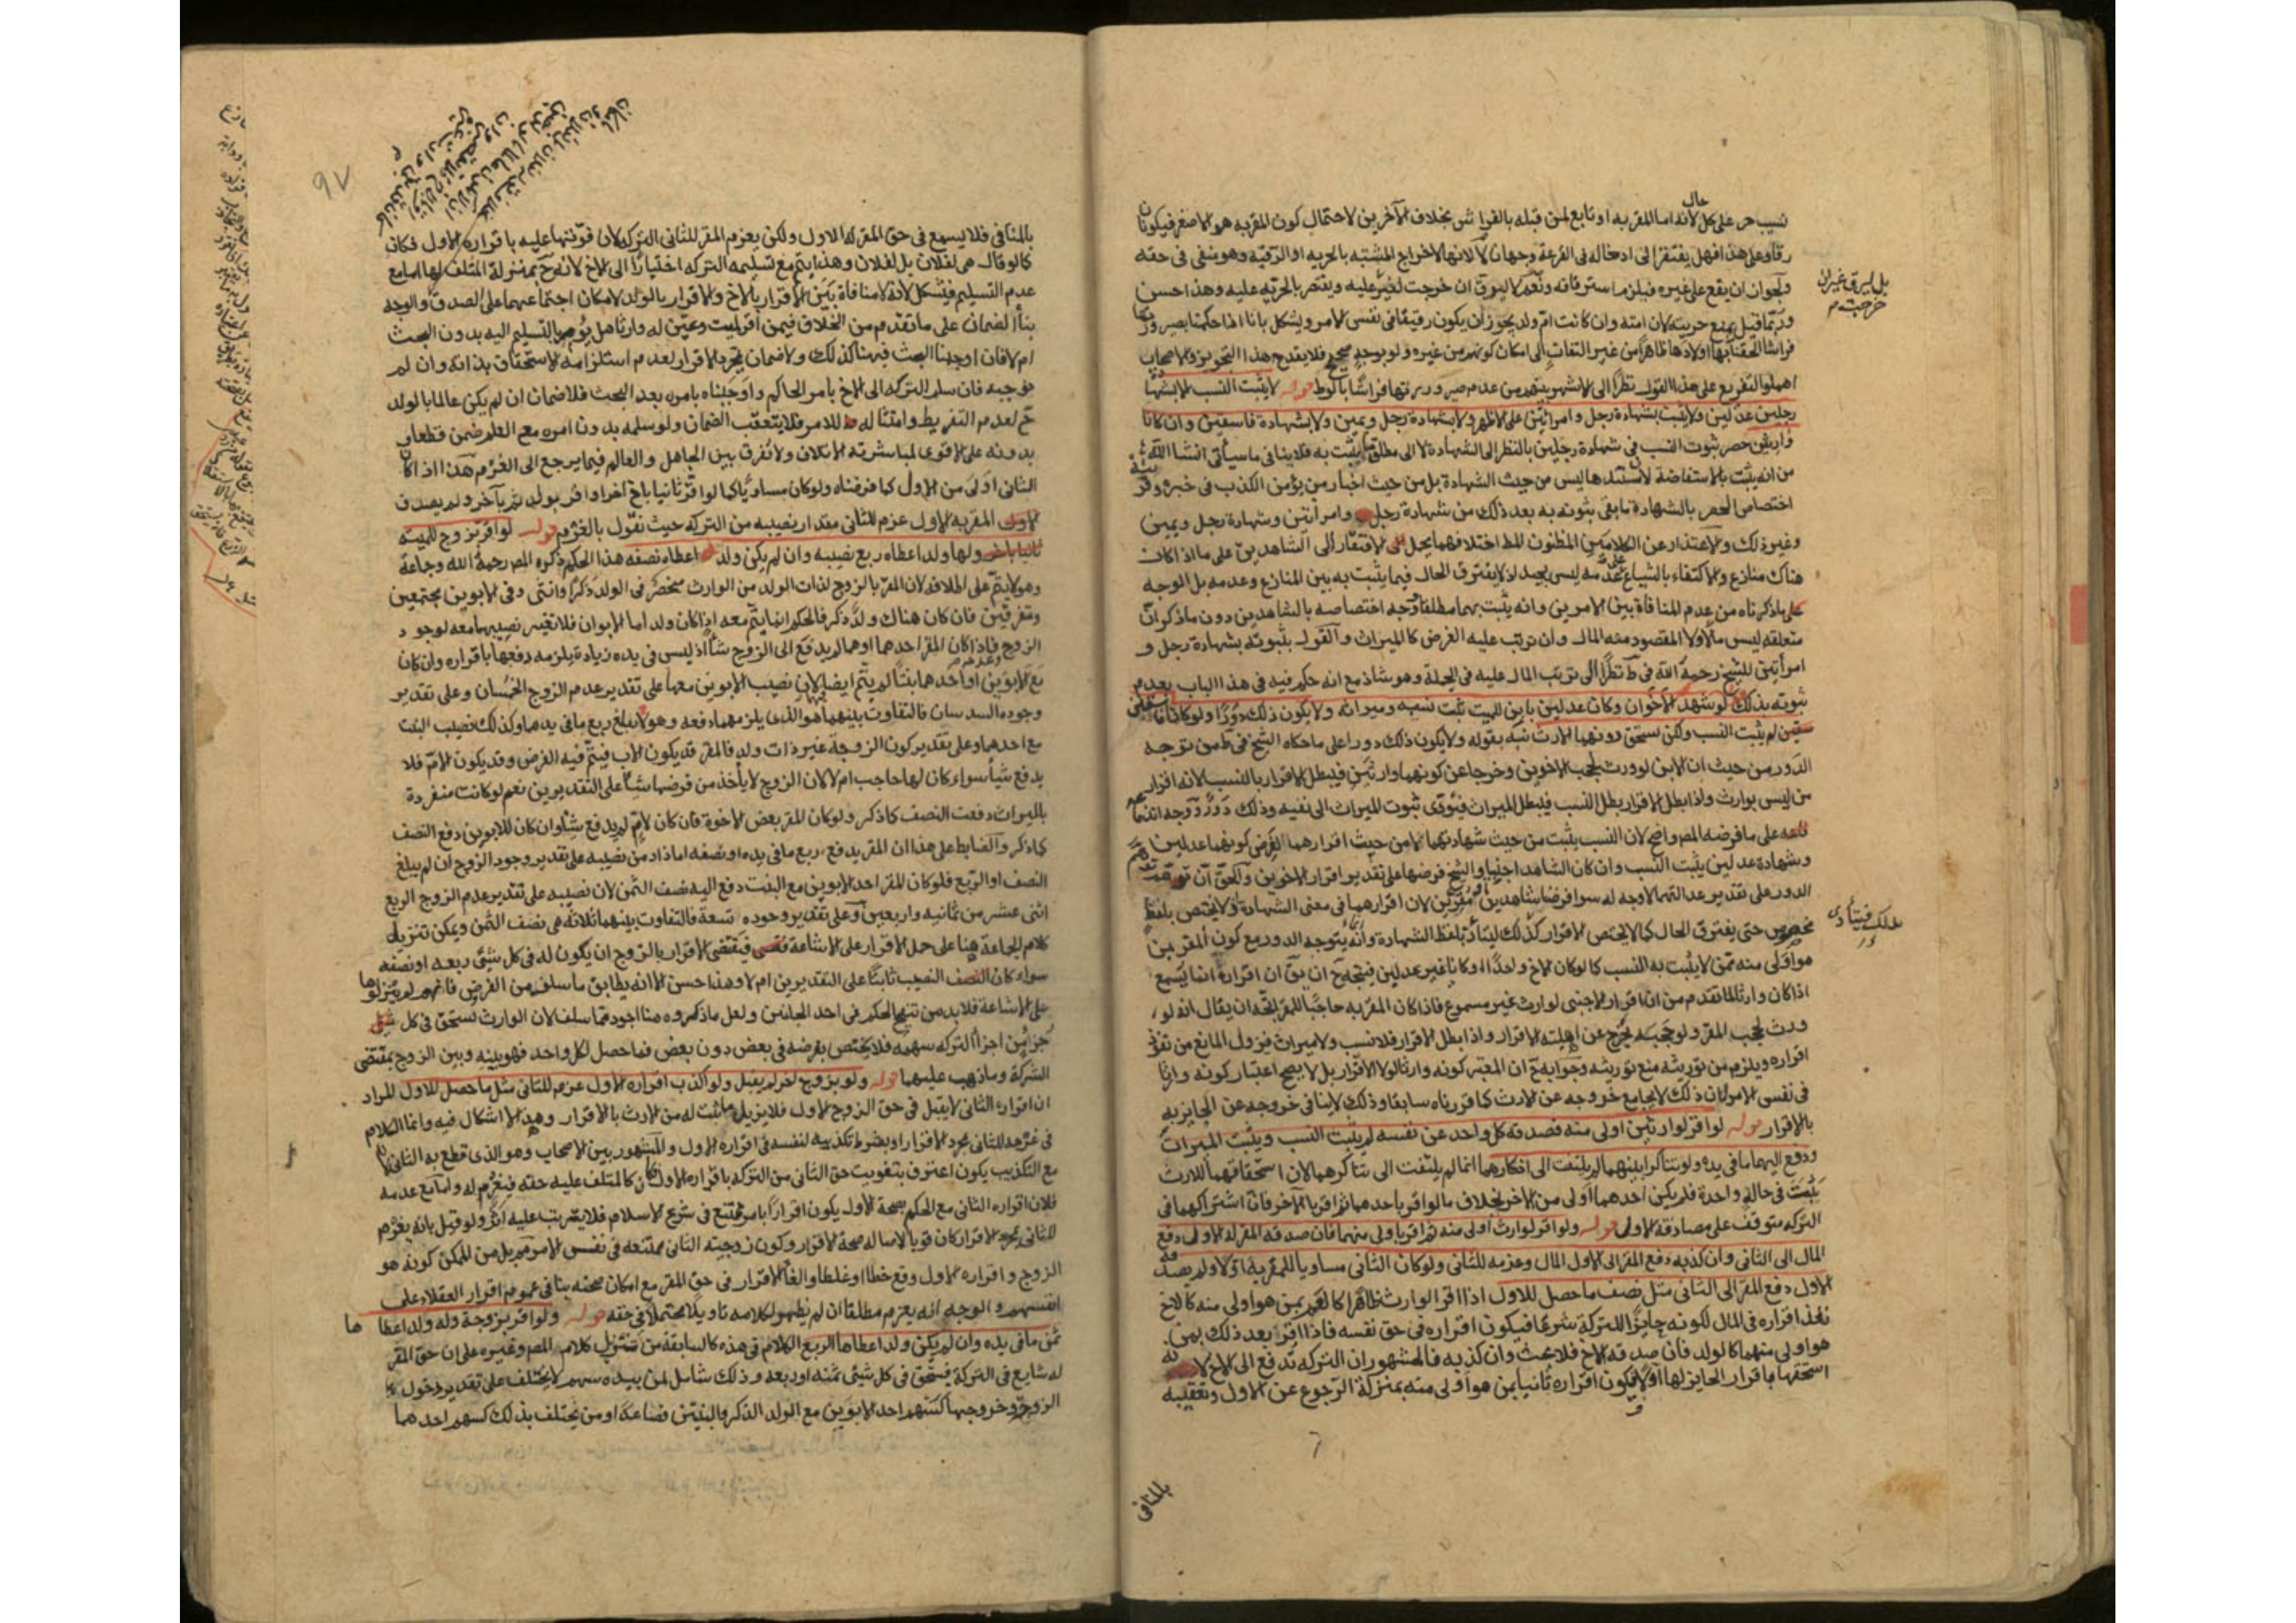 نسيب حر على كل حال لأنه اما المقر به او تابع لمن قبله بالفراش بخلاف الآخرين لاحتمال كون المقر به هو الاصغر فيكونان
رقا وعلى هذا فهل يفتقر الى ادخاله فى القرعة وجهان لا لانها لاخراج المشتبه بالحريه او الرقيه وهو منفى فى حقه
ولجواز ان يقع على غيره فيلزم استرقاقه ونعم لا ليرق ان خرجت لغيره عليه ويقتصر بالحريه عليه وهذا احسن
وربما قيل بمنع حريته لان امته وان كانت ام ولد يجوز أن يكون رقيقا فى نفس الامر ويشكل بانا اذا حكمنا بصيرورتها
فراشا الحقنا بها اولادها ظاهرا من غير التفات الى امكان كونهم من غيره ولو بوجه صحيح فلا يقدح هذا التجويز والاصحاب
اهملوا التفريع على هذا القول نظرا الى الاشهر بينهم من عدم صيرورتها فراشا بالوط قوله لا يثبت النسب الا بشهادة
رجلين عدلين ولا يثبت بشهادة رجل وامراتين على الاظهر ولا بشهادة رجل ويمين ولا بشهادة فاسقين وان كانا
وارثين حصر ثبوت النسب فى شهادة رجلين بالنظر الى الشهادة لا الى مطلق ما يثبت به فلا ينافى ما سيأتى انشا الله
من انه يثبت بالاستفاضة لان مستندها ليس من حيث الشهادة بل من حيث اخبار من يؤمن الكذب فى خبره وقرينة
اختصاص الحصر بالشهادة ما بقى ثبوته به بعد ذلك من شهادة رجل وامرأتين وشهادة رجل ويمين
وغير ذلك والاعتذار عن الكلامين المظنون للط اختلافهما بحمل على الافتقار الى الشاهدين على ما اذا كان
هناك منازع والاكتفاء بالشياع على عدمه ليس بجيد اذ لا يفترق الحال فيما يثبت به بين المنازع وعدمه بل الوجه
على ما ذكرناه من عدم المنافاة بين الامرين وانه يثبت بهما مطلقا ووجه اختصاصه بالشاهدين دون ما ذكر ان
متعلقه ليس مالا ولا المقصود منه المال وان ترتب عليه الغرض كالميراث والقول بثبوته بشهادة رجل و
امرأتين للشيخ رحمه الله فى ط نظرا الى ترتب المال عليه فى الجملة وهو شاذ مع انه حكم فيه فى هذا الباب بعدم
ثبوته بذلك قوله لو شهد الاخوان وكانا عدلين بابن للميت ثبت نسبه وميراثه ولا يكون ذلك دورا ولو كانا فاسقين
لم يثبت النسب ولكن يستحق دونهما الارث نبه بقوله ولا يكون ذلك دورا على ما حكاه الشيخ فى ط من توجه
الدور من حيث ان الابن لو ورث لحجب الاخوين وخرجا عن كونهما وارثين فيبطل الاقرار بالنسب لانه اقرار
من ليس بوارث واذا بطل الاقرار بطل النسب فيبطل الميراث فيؤدى ثبوت الميراث الى نفيه وذلك دور ووجه اندفاعه
على ما فرضه المص واضح لان النسب يثبت من حيث شهادتهما لا من حيث اقرارهما لفرض كونهما عدلين
وشهادة عدلين يثبت النسب وان كان الشاهد اجنبيا والشيخ فرضها على تقدير اقرار الاخوين والحق ان توهم
الدور على تقدير عدالتهما لا وجه له سوا فرضا شاهدين او مقرين لان اقرارهما فى معنى الشهادة ولا يختص بلفظ
مخصوص حتى يفترق الحال كما لا يختص الاقرار كذلك ليتأدى بلفظ الشهادة وانما يتوجه الدور مع كون المقر من
هو اولى منه ممن لا يثبت به النسب كما لو كان الاخ واحدا او كانا غير عدلين فيتجه ح ان يق ان اقراره انما يسمع
اذا كان وارثا لما تقدم من ان اقرار الاجنبى لوارث غير مسموع فاذا كان المقر به حاجبا للمقر اتجه ان يقال انه لو
ورث لحجب المقر ولو حجبه لخرج عن اهلية الاقرار واذا بطل الاقرار فلا نسب ولا ميراث فيزول المانع من نفوذ
اقراره ويلزم من توريثه منع توريثه وجوابه ح ان المعتبر كونه وارثا لولا الاقرار بل لا يصح اعتبار كونه وارثا
فى نفس الامر لان ذلك لا يجامع خروجه عن الارث كما قررناه سابقا وذلك لا ينافى خروجه عن الحايزيه
بالاقرار قوله لو اقر لوارثين اولى منه فصدقه كل واحد عن نفسه لم يثبت النسب ويثبت الميراث
ودفع اليهما ما فى يده ولو تناكرا بينهما لم يلتفت الى انكارهما انما لم يلتفت الى تناكرهما لان استحقاقهما للارث
يثبت فى حالة واحدة فلم يكن احدهما اولى من الاخر بخلاف ما لو اقر باحدهما ثم اقر بالآخر فان اشتراكهما فى
التركه متوقف على مصادقة الاول قوله ولو اقر لوارث اولى منه ثم اقر باولى منهما فان صدقه المقر له الاول دفع
المال الى الثانى وان كذبه دفع المقر الى الاول المال وغرمه للثانى ولو كان الثانى مساويا للمقر به اولا ولم يصدقه
الاول دفع المقر الى الثانى مثل نصف ما حصل للاول اذا اقر الوارث ظاهرا كالعم بمن هو اولى منه كالاخ
نفذ اقراره فى المال لكونه حايزا للتركة شرعا فيكون اقراره فى حق نفسه فاذا اقر بعد ذلك بمن
هو اولى منهما كالولد فان صدقه الاخ فلا بحث وان كذبه فالمشهور ان التركه تدفع الى الاخ لانه
استحقها باقرار الحايز لها اولا فيكون اقراره ثانيا بمن هو اولى منه بمنزلة الرجوع عن الاول وتعقيبه
بالمنافى
بل ليرق غيره ان
خرجت م
97
بالمنافى فلا يسمع فى حق المقر له الاول ولكن يغرم المقر للثانى التركه لان فوتها عليه باقراره الاول فكان
كما لو قال هى لفلان بل لفلان وهذا يتم مع تسليمه التركه اختيارا الى الاخ لانه ح بمنزلة المتلف لها اما مع
عدم التسليم فيشكل لانه لا منافاة بين الاقرار بالاخ والاقرار بالولد لامكان اجتماعهما على الصدق والوجه
بناء الضمان على ما تقدم من الخلاف فيمن اقر لميت وعين له وارثا هل يؤمر بالتسليم اليه بدون البحث
ام لا فان اوجبنا البحث فهنا كذلك ولا ضمان بمجرد الاقرار لعدم استلزامه الاستحقاق بذاته وان لم
نوجبه فان سلم التركه الى الاخ بأمر الحاكم واوجبناه بامره بعد البحث فلا ضمان ان لم يكن عالما بالولد
ح لعدم التفريط وامتثاله للامر فلا يتعقب الضمان ولو سلمه بدون امره مع العلم ضمن قطعا و
بدونه على الاقوى لمباشرته الاتلاف ولا نفرق بين الجاهل والعالم فيما يرجع الى الغرم هذا اذا كان
الثانى اولى من الاول كما فرضناه ولو كان مساويا كما لو اقر ثانيا باخ اخر او اقر بولد ثم بآخر ولم يصدق
المقر به الاول غرم للثانى مقدار نصيبه من التركه حيث نقول بالغرم قوله لو اقر بزوج للميته
ولها ولد اعطاه ربع نصيبه وان لم يكن ولد اعطاه نصفه هذا الحكم ذكره المص رحمه الله وجماعة
وهو لا يتم على اطلاقه لان المقر بالزوج لذات الولد من الوارث منحصر فى الولد ذكرا وانثى وفى الابوين مجتمعين
ومتفرقين فان كان هناك ولد ذكر فالحكم انما يتم معه اذا كان ولد اما الابوان فلا تغير نصيبهما معه لوجود
الزوج وعدمه فاذا كان المقر احدهما او هما لم يدفع الى الزوج شأ اذ ليس فى يده زيادة يلزمه دفعها باقراره وان كان
مع الابوين او احدهما بنتا لم يتم ايضا لان نصيب الابوين معها على تقدير عدم الزوج الخمسان وعلى تقدير
وجوده السدسان فالتفاوت بينهما هو الذى يلزمهما دفعه وهو لا يبلغ ربع ما فى يدهما وكذلك نصيب البنت
مع احدهما وعلى تقدير كون الزوجة غير ذات ولد فالمقر قد يكون الاب فيتم فيه الفرض وقد يكون الام فلا
يدفع شيأ سواء كان لها حاجب ام لا لان الزوج لا يأخذ من فرضها شيئا على التقديرين نعم لو كانت منفردة
بالميراث دفعت النصف كما ذكر ولو كان المقر بعض الاخوة فان كان لام لم يدفع شيئا وان كان للابوين دفع النصف
كما ذكر والضابط على هذا ان المقر يدفع ربع ما فى يده او نصفه اما زاد من نصيبه على تقدير وجود الزوج ان لم يبلغ
النصف او الربع فلو كان المقر احد الابوين مع البنت دفع اليه نصف الثمن لان نصيبه على تقدير عدم الزوج الربع
اثنى عشر من ثمانيه واربعين وعلى تقدير وجوده تسعة فالتفاوت بينهما ثلاثة هى نصف الثمن ويمكن تنزيل
كلام الجماعة هنا على حمل الاقرار على الاشاعة فيقتضى الاقرار بالزوج ان يكون له فى كل شىء ربعه او نصفه
سواء كان النصيب ثابتا على التقديرين ام لا وهذا حسن الا انه يطابق ما سلف من الفرض فانهم لم ينزلوها
على الاشاعة فلا بد من تنقيح الحكم فى احد الجانبين ولعل ما ذكروه هنا اجود مما سلف لان الوارث يستحق فى كل
جزء من اجزا التركه سهمه فلا يختص بفرضه فى بعض دون بعض فما حصل لكل واحد فهو بينه وبين الزوج بمقتضى
الشركة وما ذهب عليهما قوله ولو بزوج اخر لم يقبل ولو اكذب اقراره الاول غرم للثانى مثل ما حصل للاول المراد
ان اقراره الثانى لا يقبل فى حق الزوج الاول فلا يزيل ما ثبت له من الارث بالاقرار وهذا لا اشكال فيه وانما الكلام
فى غرمه للثانى بمجرد الاقرار او بشرط تكذيبه لنفسه فى اقراره الاول والمشهور بين الاصحاب وهو الذى قطع به الثانى لانه
مع التكذيب يكون اعترف بتفويت حق الثانى من التركه باقراره الاول فكان كالمتلف عليه حقه فيغرم له واما مع عدمه
فلان اقراره الثانى مع الحكم بصحة الاول يكون اقرارا بامر ممتنع فى شرع الاسلام فلا يترتب عليه اثر ولو قيل بانه يغرم
للثانى بمجرد الاقرار كان قويا لاصاله صحة الاقرار وكون زوجيته الثانى ممتنعه فى نفس الامر مم بل من الممكن كونه هو
الزوج واقراره الاول وقع خطا او غلطا والغاء الاقرار فى حق المقر مع امكان صحته ينافى عموم اقرار العقلاء على
انفسهم والوجه انه يغرم مطلقا ان لم يظهر لكلامه تاويلا محتملا فى حقه قوله ولو اقر بزوجة وله ولد اعطاها
ثمن ما فى يده وان لم يكن ولد اعطاها الربع الكلام فى هذه كالسابقة من تنزيل كلام المص وغيره على ان حق المقر
له شايع فى التركة فيستحق فى كل شىء ثمنه او ربعه وذلك شامل لمن بيده سهم لا يختلف على تقدير دخول
الزوج وخروجها كسهم احد الابوين مع الولد الذكر والبنتين فصاعدا ومن يختلف بذلك كسهم احدهما